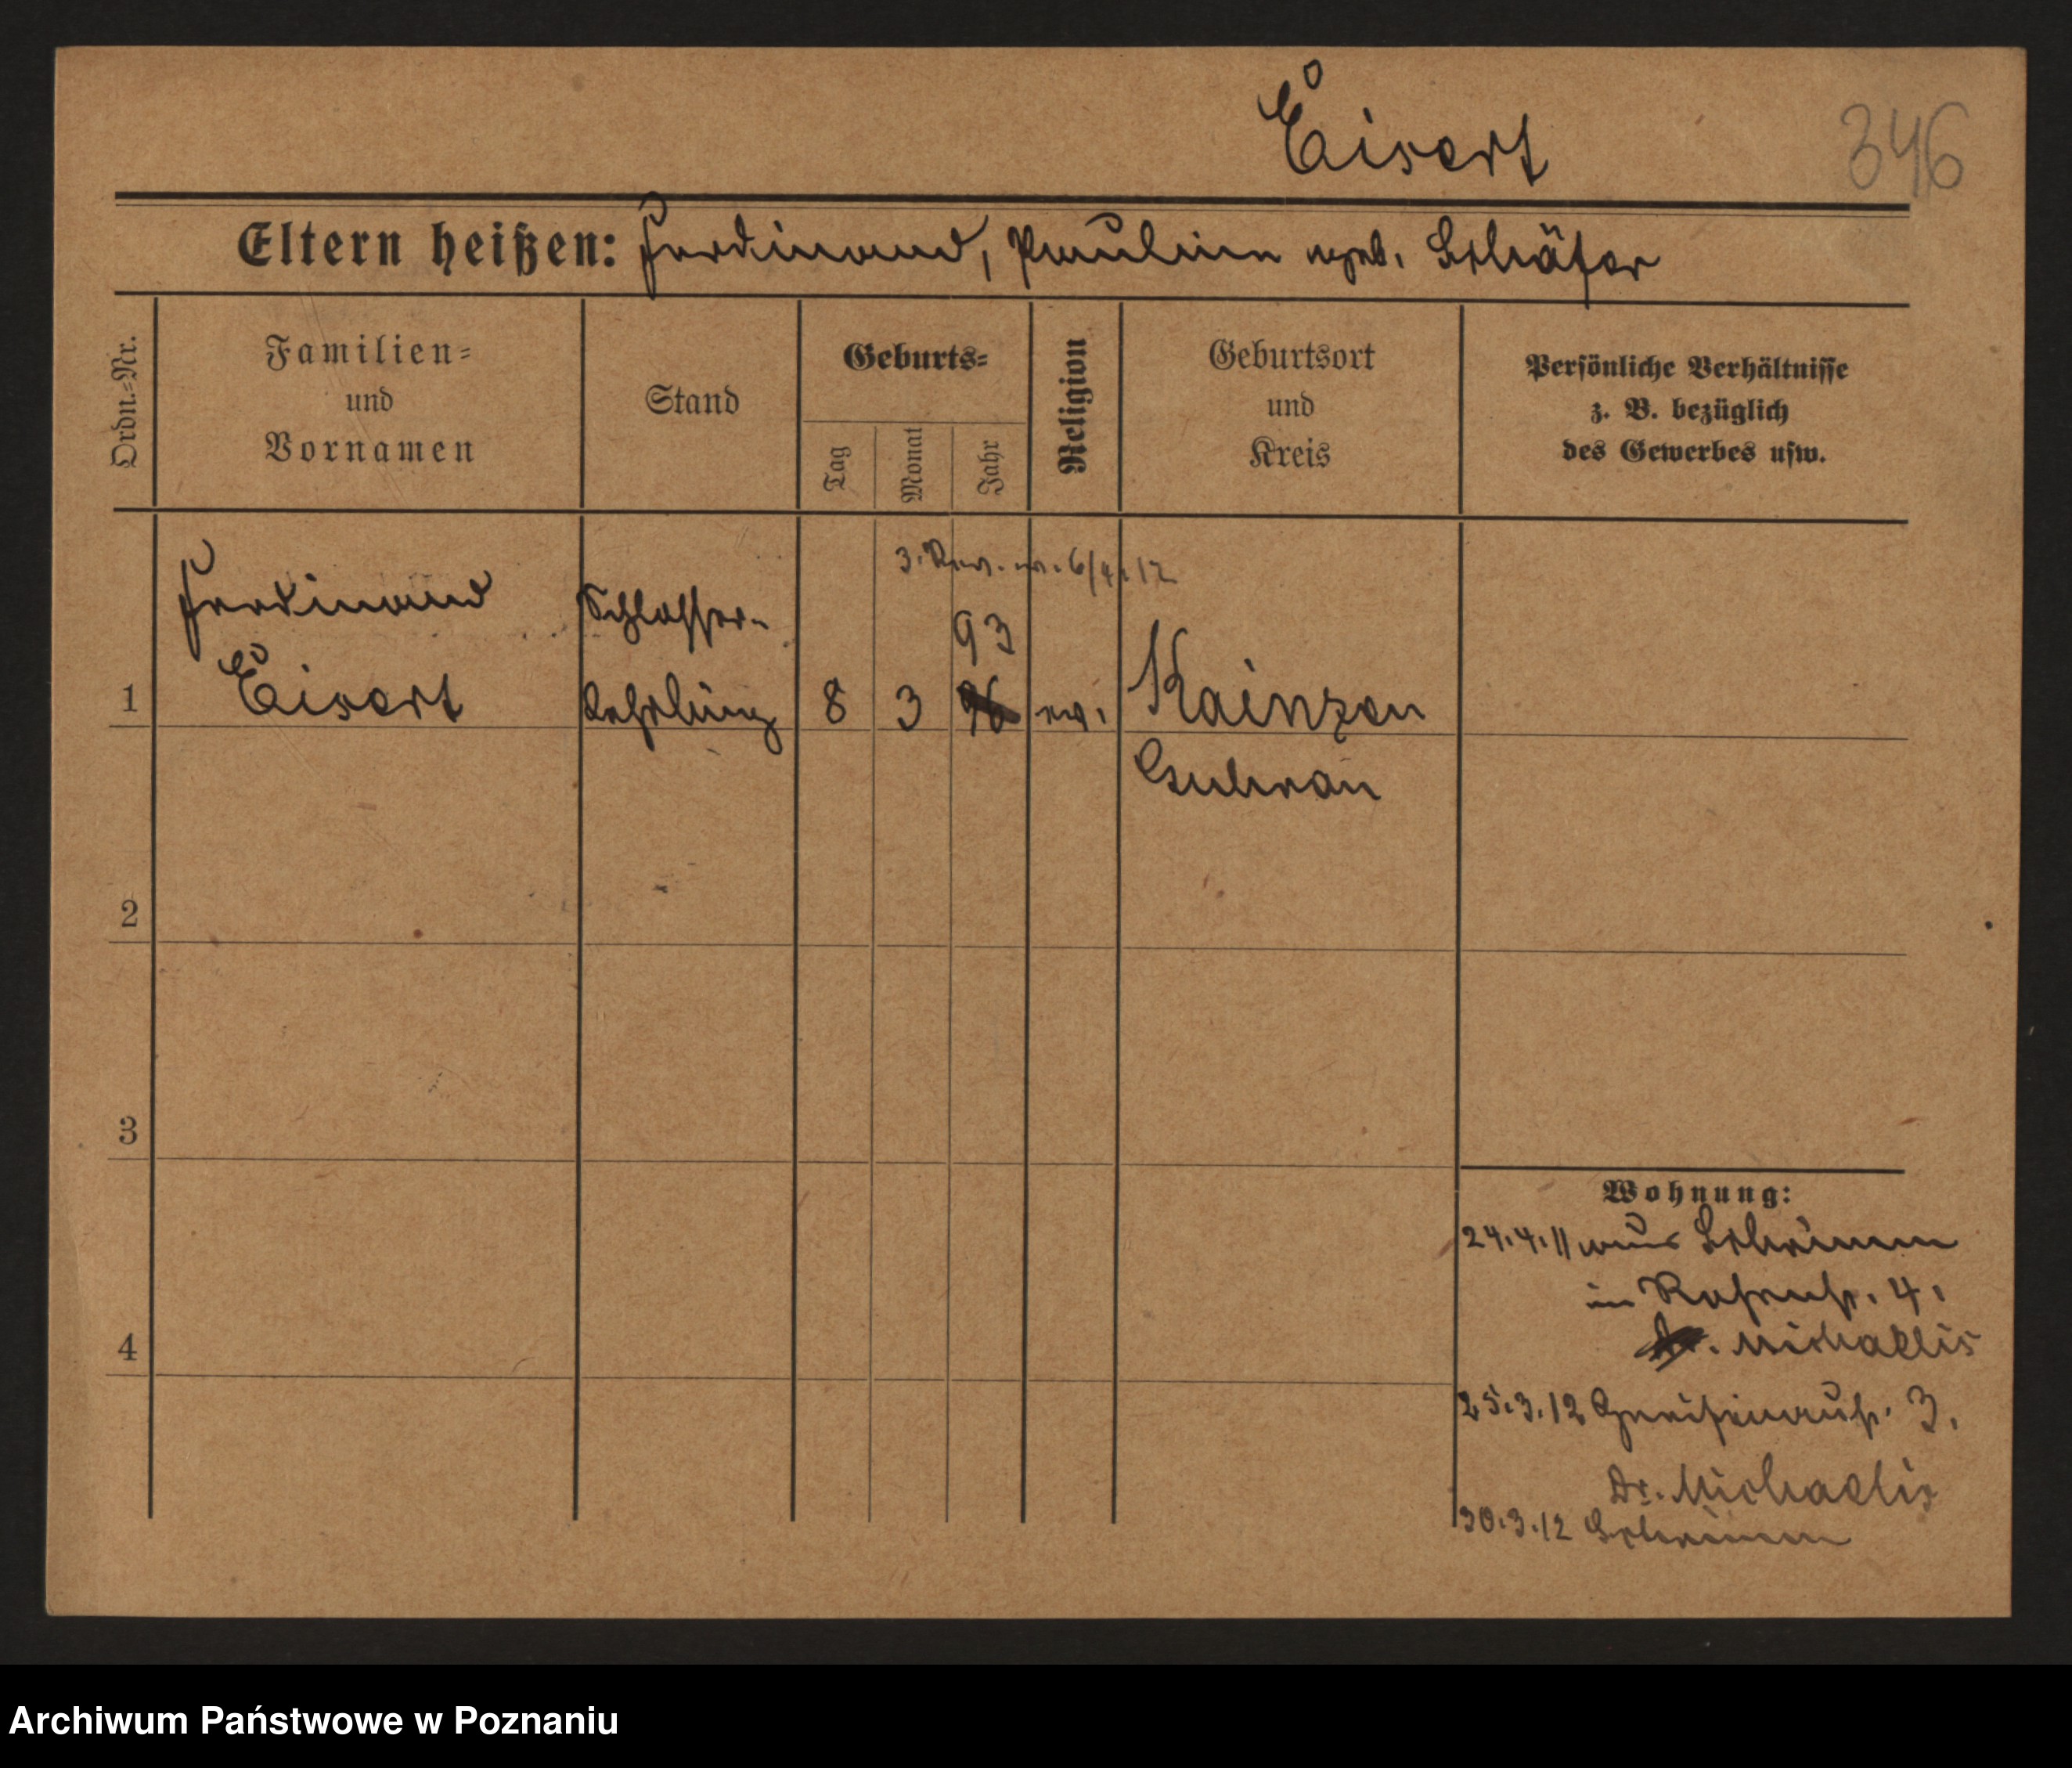 Eisert
346
Eltern heißen: Ferdinand, Pauline geb. Schäfer
Ordn.=Nr.
Familien=
und
Vornamen
Stand
Geburts=
Tag
Monat
Jahr
Religion
Geburtsort
und
Kreis
Persönliche Verhältnisse
z. B. bezüglich
des Gewerbes usw.
6/4.12
Ferdinand Schlosser-
93
1 Eisert Lehrling 8 3 96 ev. Kainzen
Guhrau
2
3
4
Wohnung:
24.4.11 aus Schrimm
in 4.
Dr. Michaelis
25.3.12 Gneisenaustr. 3.
Dr. Michaelis
30.3.12 Schrimm
Archiwum Państwowe w Poznaniu